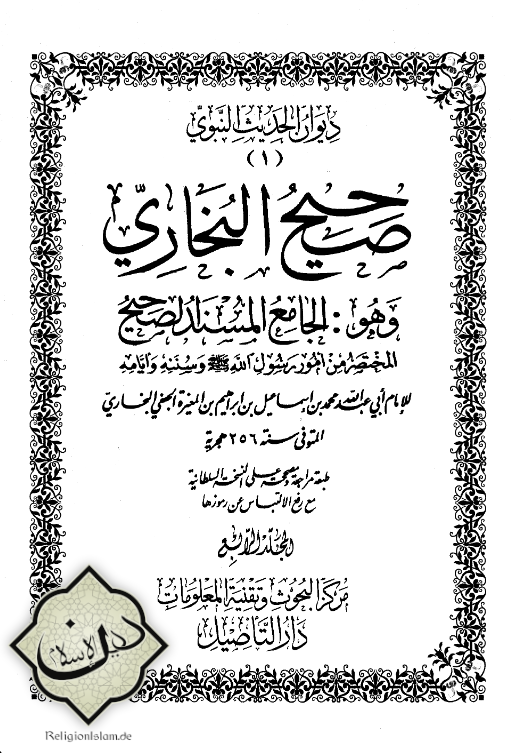 ديوان الحديث النبوي
(١)
صحيح البخاري
وهو : الجامع المسند الصحيح
المختصر من أمور رسول الله ﷺ وسننه وأيامه
للإمام أبي عبد الله محمد بن إسماعيل بن إبراهيم بن المغيرة الجعفي البخاري
المتوفى سنة ٢٥٦ هجرية
طبعة مراجعة ومصححة على النسخة السلطانية
مع رفع الالتباس عن رموزها
المجلد الرابع
مركز البحوث وتقنية المعلومات
دار التأصيل
دين الإسلام
ReligionIslam.de